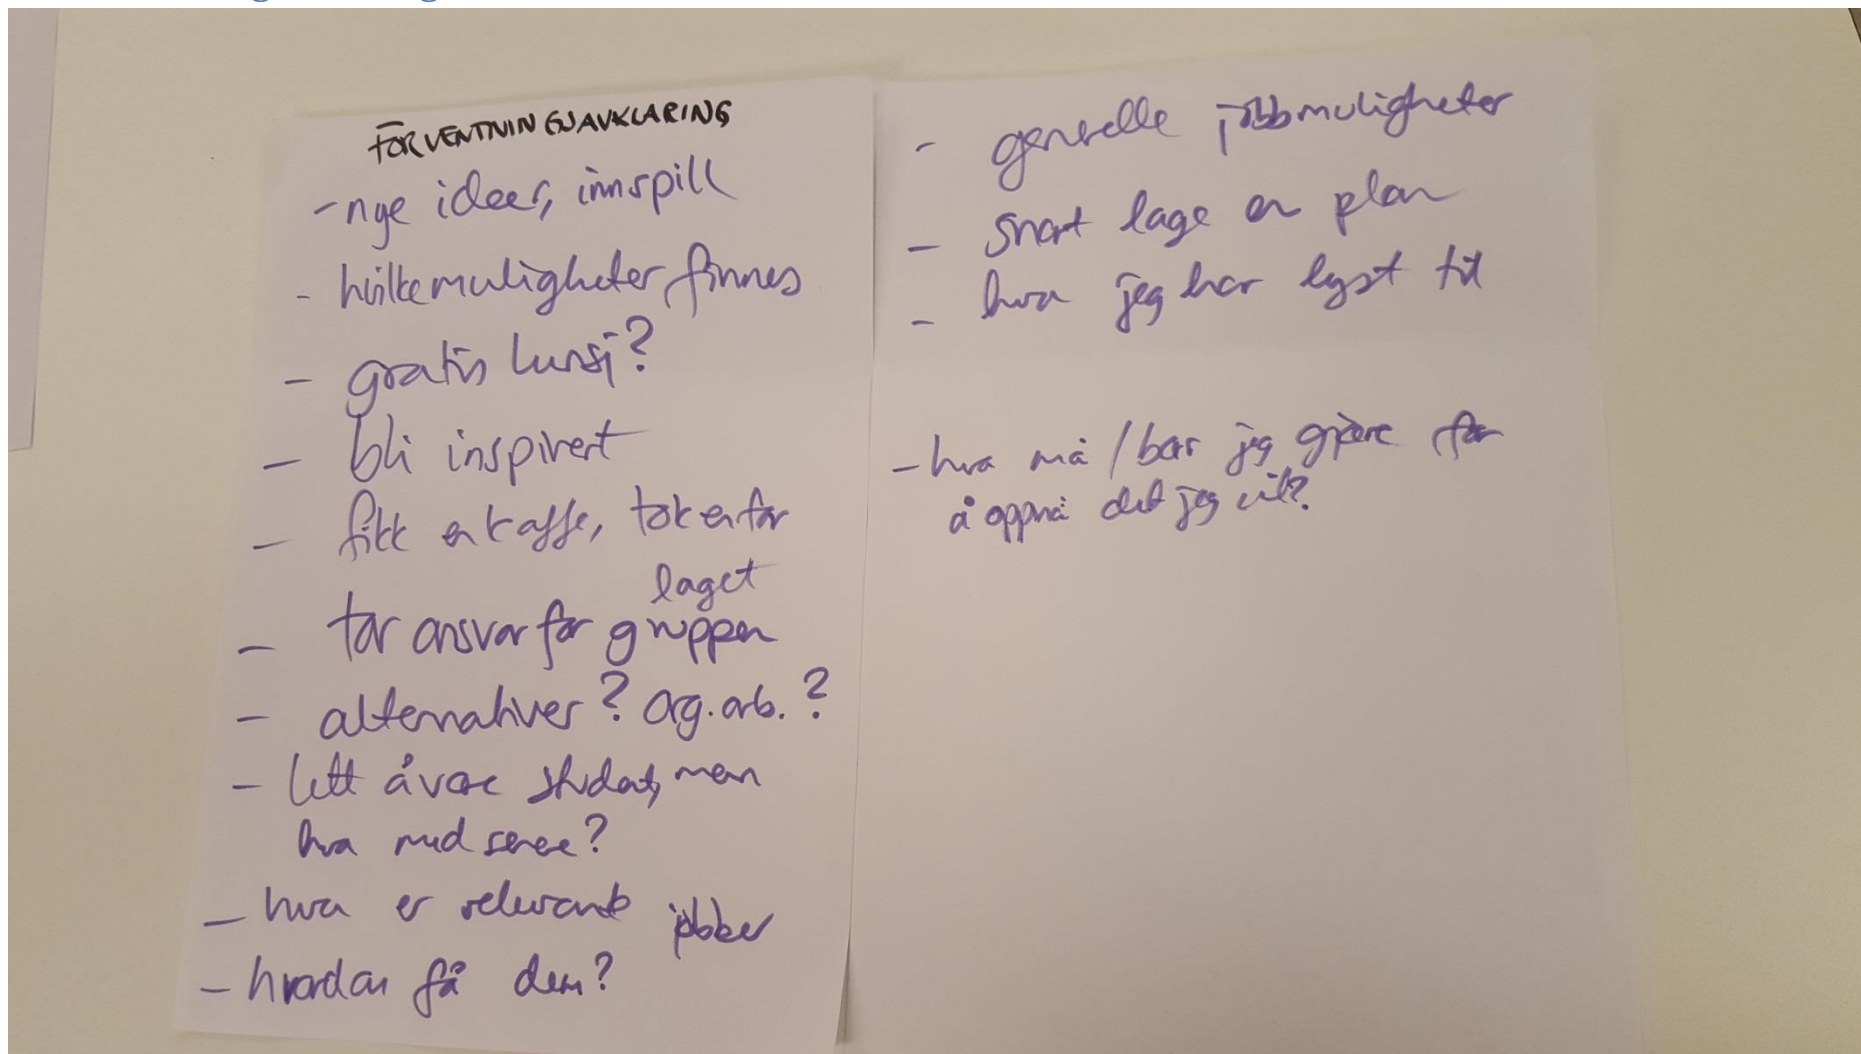 FORVENTNINGSAVKLARING
- nye ideer, innspill
- hvilke muligheter finnes
- gratis lunsj?
- bli inspirert
- fikk en kaffe, tok en for
laget
- tar ansvar for gruppen
- alternativer? org.arb.?
- lett å være student, men
hva med senere?
- hva er relevante jobber
- hvordan få dem?
- generelle jobbmuligheter
- snart lage en plan
- hva jeg har lyst til
- hva må / bør jeg gjøre for
å oppnå det jeg vil?